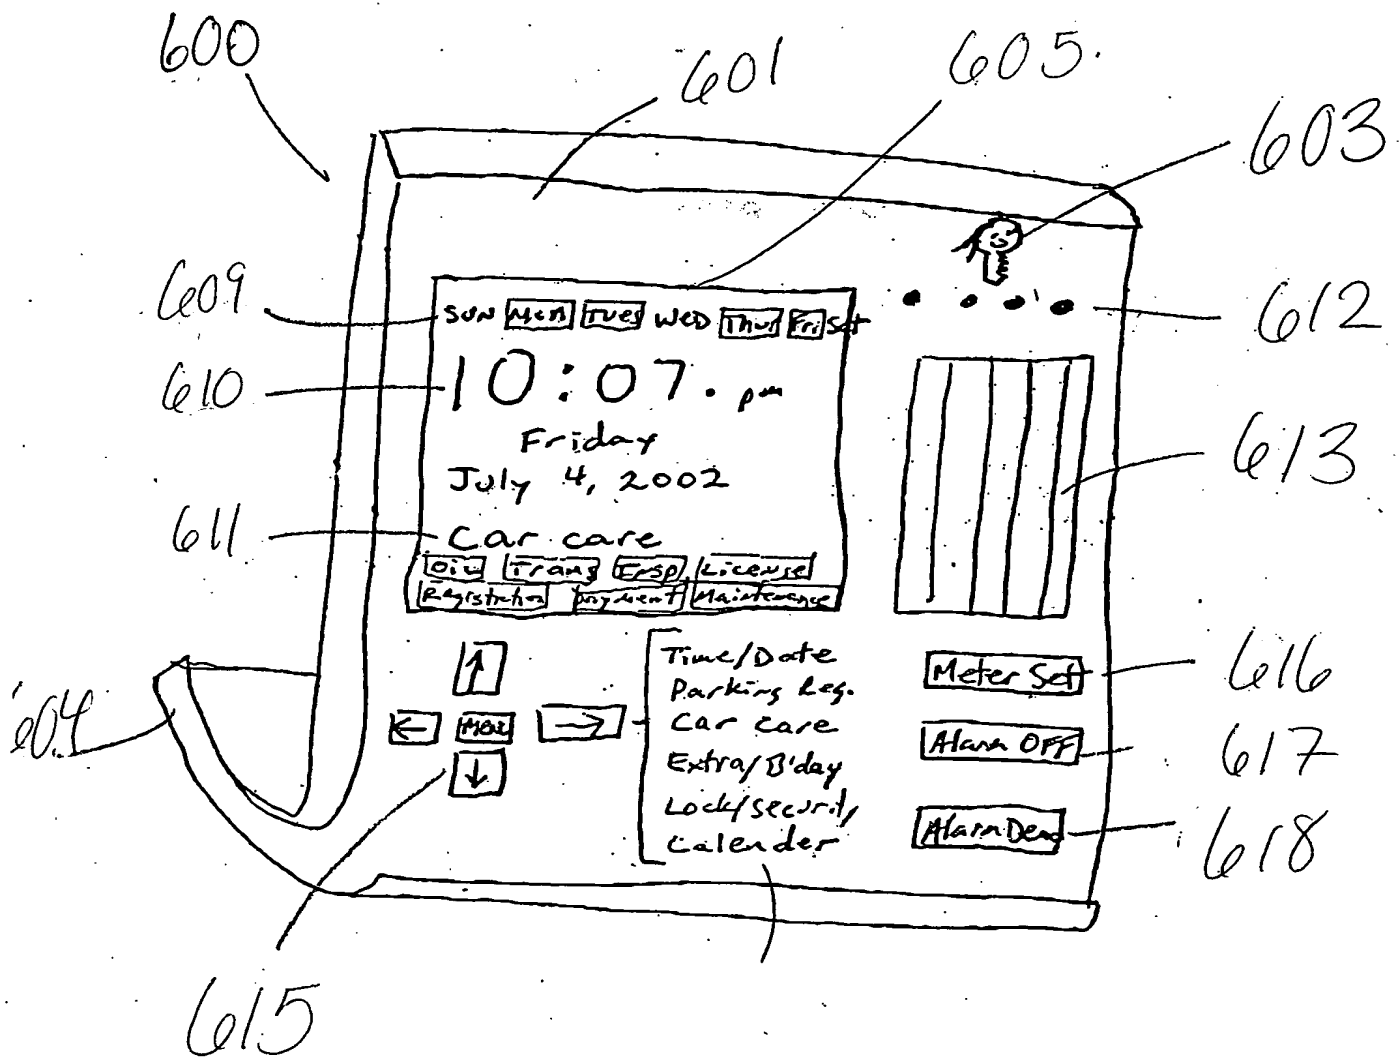 600
601
605.
603
609
SUN Mon Tues WED Thur Fri Sat
612
610
10:07. pm
Friday
July 4, 2002
613
611
Car care
Oil Trans Insp License
Registration payment Maintenance
Time/Date
Parking Reg.
Car care
Extra/B'day
Lock/Security
Calender
Menu
Meter Set
616
604
Alarm OFF
617
Alarm Deac
618
615